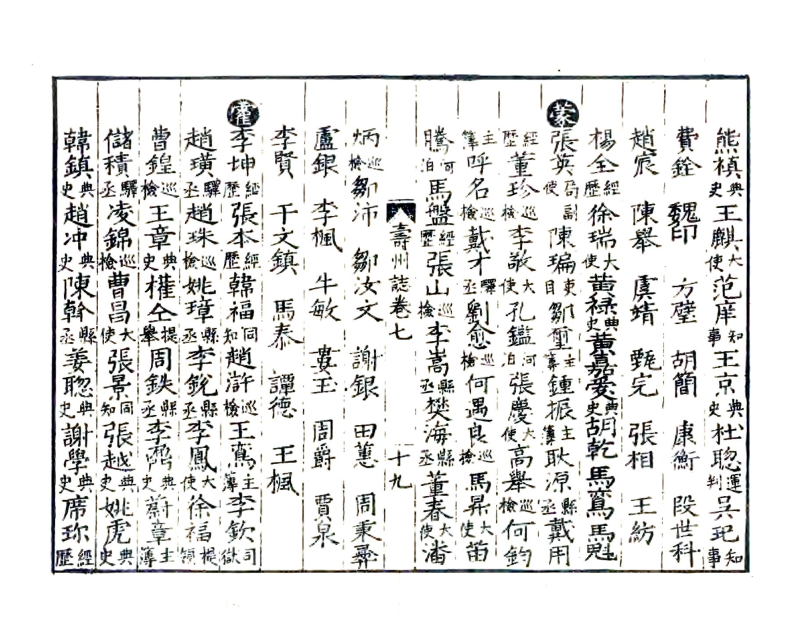 熊禎典史王麒大使范庠知事王京典史杜聰運判吳玘知事
費銓 魏印 方璧 胡簡 康衡 段世科
趙宸 陳舉 虞靖 甄完 張相 王紡
楊全經歷徐瑞大使黃祿典史黃嘉愛典史胡乾 馬鸞 馬魁
蒙
張英局副使陳瑀吏目鄒璽主簿鍾振主簿耿源縣丞戴用
經歷董珍巡檢李敬大使孔鑑河泊張慶大使高舉巡檢何鈞
主簿呼名巡檢戴才驛丞劉愈巡檢何遇良巡檢馬昇大使苗
騰河泊馬盤經歷張山巡檢李嵩縣丞樊海縣丞董春大使潘
壽州誌卷七 十九
炳巡檢鄒沛 鄒汝文 謝銀 田蕙 周秉彝
盧銀 李楓 牛敏 婁玉 周爵 賈泉
李賢 于文鎮 馬泰 譚德 王楓
霍
李坤經歷張本經歷韓福同知趙滸巡檢王鸞主簿李欽司獄
趙璜驛丞趙珠巡檢姚璋縣丞李銳縣丞李鳳大使徐福提領
曹鍠巡檢王章典史權仝提舉周鉄縣丞李霑典史蔚章主簿
儲積驛丞凌錦巡檢曹昌大使張景同知張越典史姚虎典史
韓鎮典史趙冲典史陳幹縣丞姜聰典史謝學典史席珎經歷